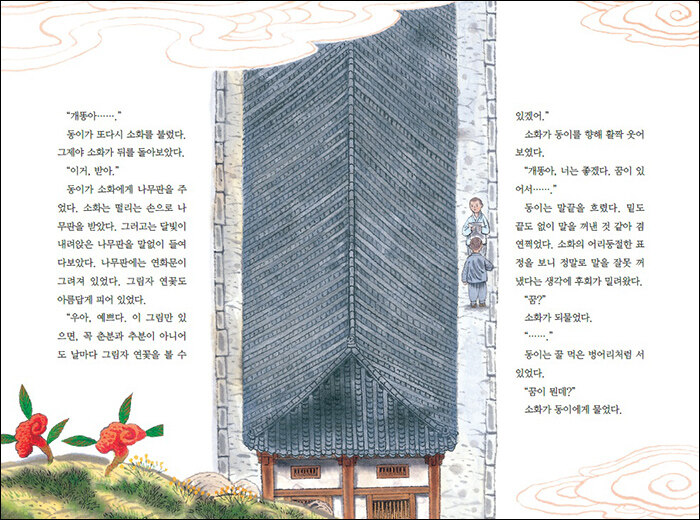 “개똥아…….”
동이가 또다시 소화를 불렀다.
그제야 소화가 뒤를 돌아보았다.
“이거, 받아.”
동이가 소화에게 나무판을 주
었다. 소화는 떨리는 손으로 나
무판을 받았다. 그러고는 달빛이
내려앉은 나무판을 말없이 들여
다보았다. 나무판에는 연화문이
그려져 있었다. 그림자 연꽃도
아름답게 피어 있었다.
“우아, 예쁘다. 이 그림만 있
으면, 꼭 춘분과 추분이 아니어
도 날마다 그림자 연꽃을 볼 수
있겠어.”
소화가 동이를 향해 활짝 웃어
보였다.
“개똥아, 너는 좋겠다. 꿈이 있
어서…….”
동이는 말끝을 흐렸다. 밑도
끝도 없이 말을 꺼낸 것 같아 겸
연쩍었다. 소화의 어리둥절한 표
정을 보니 정말로 말을 잘못 꺼
냈다는 생각에 후회가 밀려왔다.
“꿈?”
소화가 되물었다.
“…….”
동이는 꿀 먹은 벙어리처럼 서
있었다.
“꿈이 뭔데?”
소화가 동이에게 물었다.